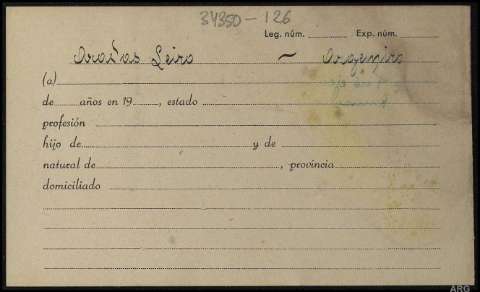 34350-126
Leg. núm. Exp. núm.
Oradas Leiro ~ Argemiro
(a)
de años en 19 , estado
profesión
hijo de y de
natural de , provincia
domiciliado
ARG